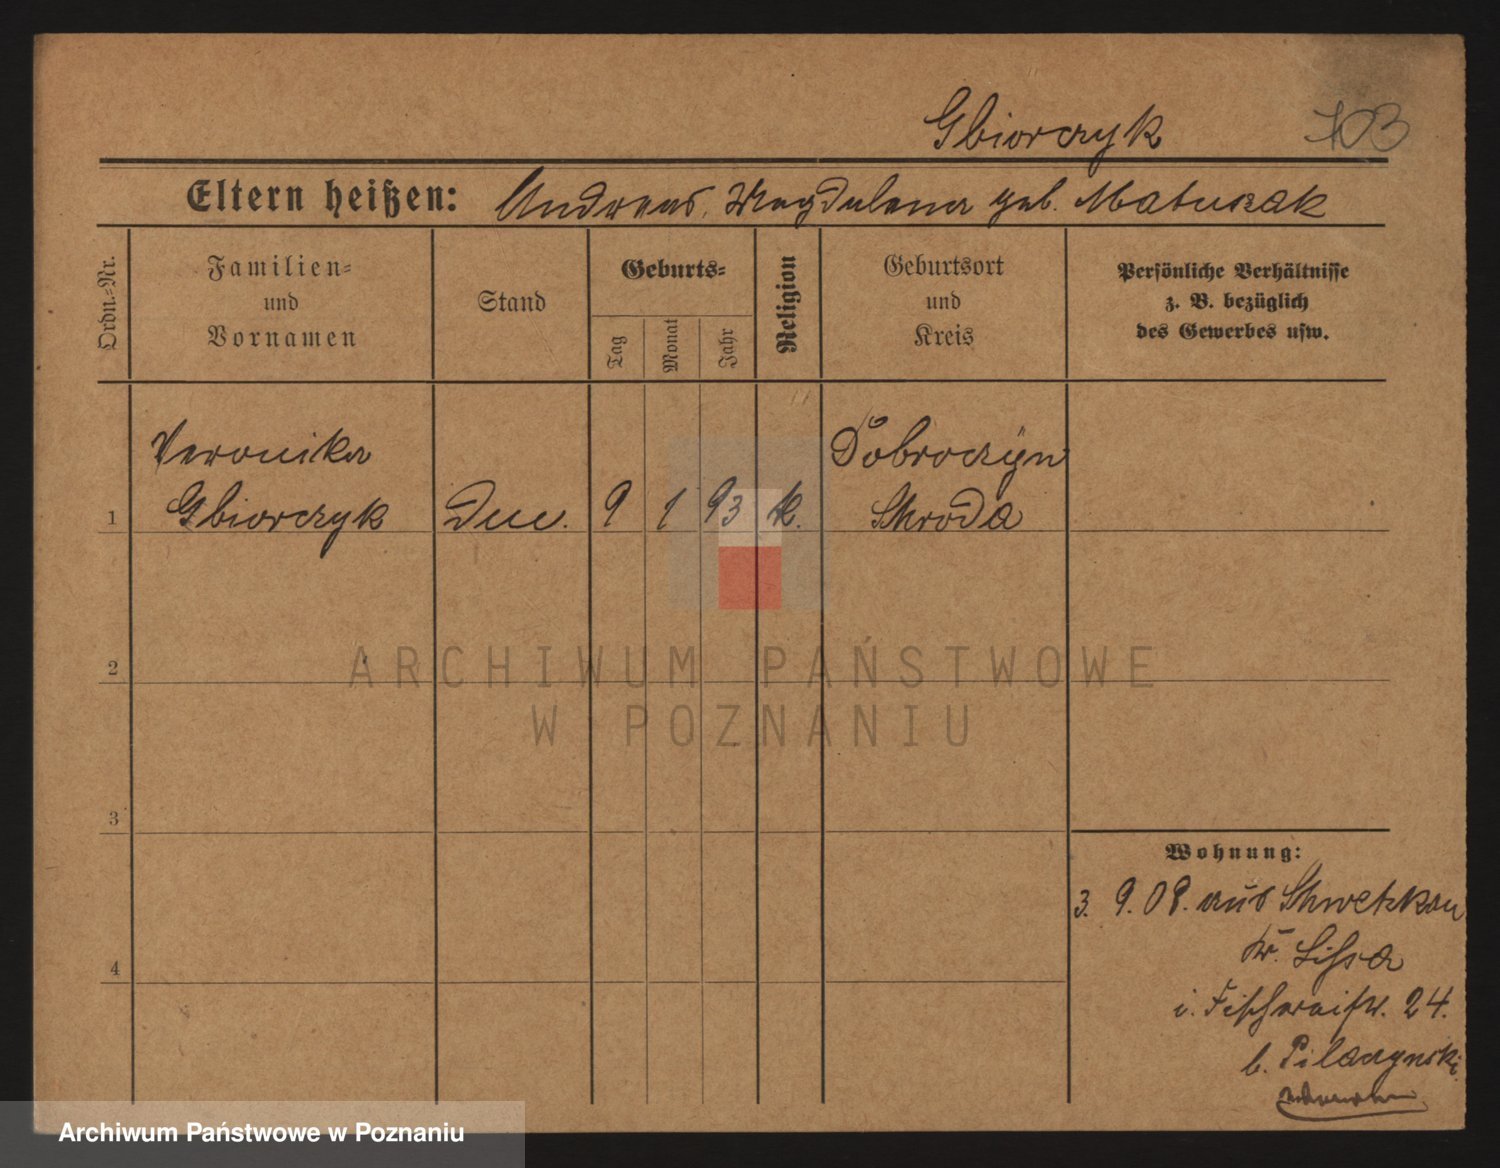 Gbiorczyk 103
Eltern heißen: Andreas, Magdalena geb. Matuszak
Ordn.-Nr.
Familien-
und
Vornamen
Stand
Geburts-
Tag
Monat
Jahr
Religion
Geburtsort
und
Kreis
Persönliche Verhältnisse
z. B. bezüglich
des Gewerbes usw.
Veronika Dobroczyn
1 Gbiorczyk 9 1 93 k. Schroda
2
3
4
Wohnung:
3. 9. 09. aus
Kr. Lissa
i. Fischereistr. 24.
b. Pilaczynski
ARCHIWUM PAŃSTWOWE
W POZNANIU
Archiwum Państwowe w Poznaniu